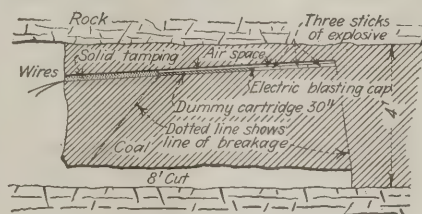 Rock
Three sticks
of explosive
Solid tamping
Air space
Wires
Electric blasting cap
Dummy cartridge 30"
4'
Dotted line shows
line of breakage
Coal
8' Cut